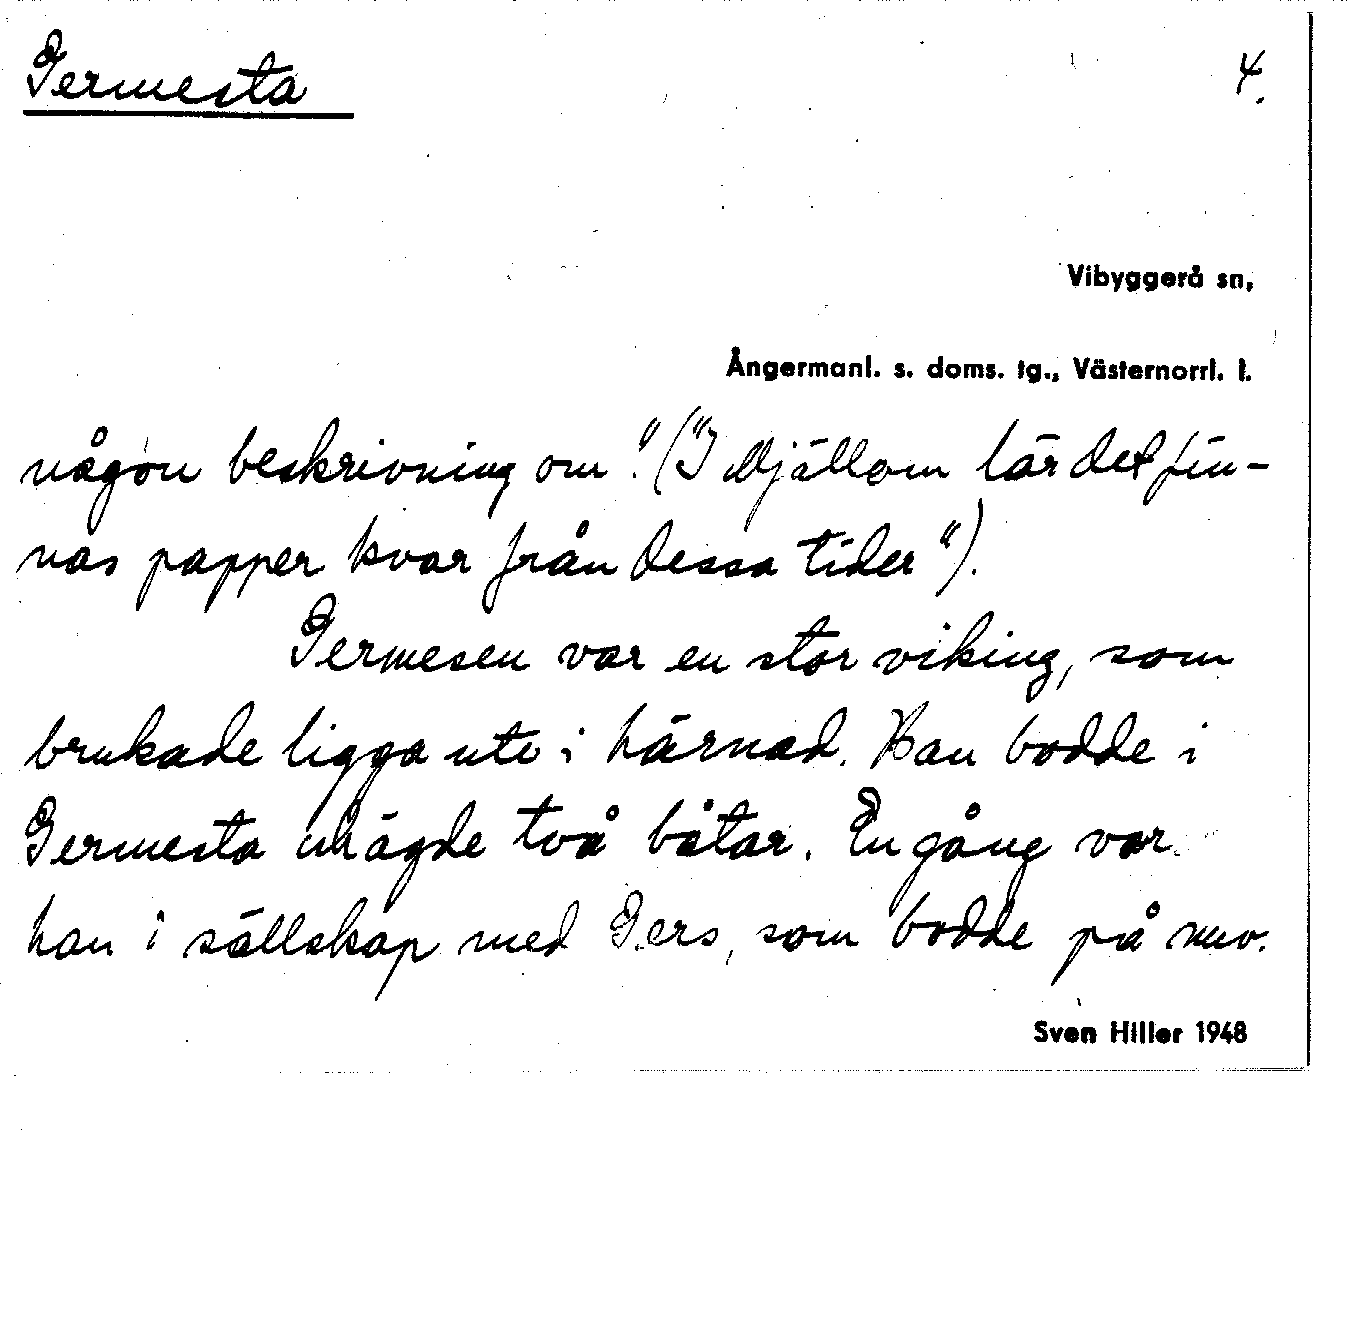 Germesta
4.
Vibyggerå sn,
Ångermanl. s. doms. tg., Västernorrl. l.
någon beskrivning om." ("I Mjällom lär det fin-
nas papper kvar från dessa tider").
Germesen var en stor viking, som
brukade ligga ute i härnad. Han bodde i
Germesta och ägde två båtar. En gång var
han i sällskap med Gers, som bodde på nuv.
Sven Hiller 1948